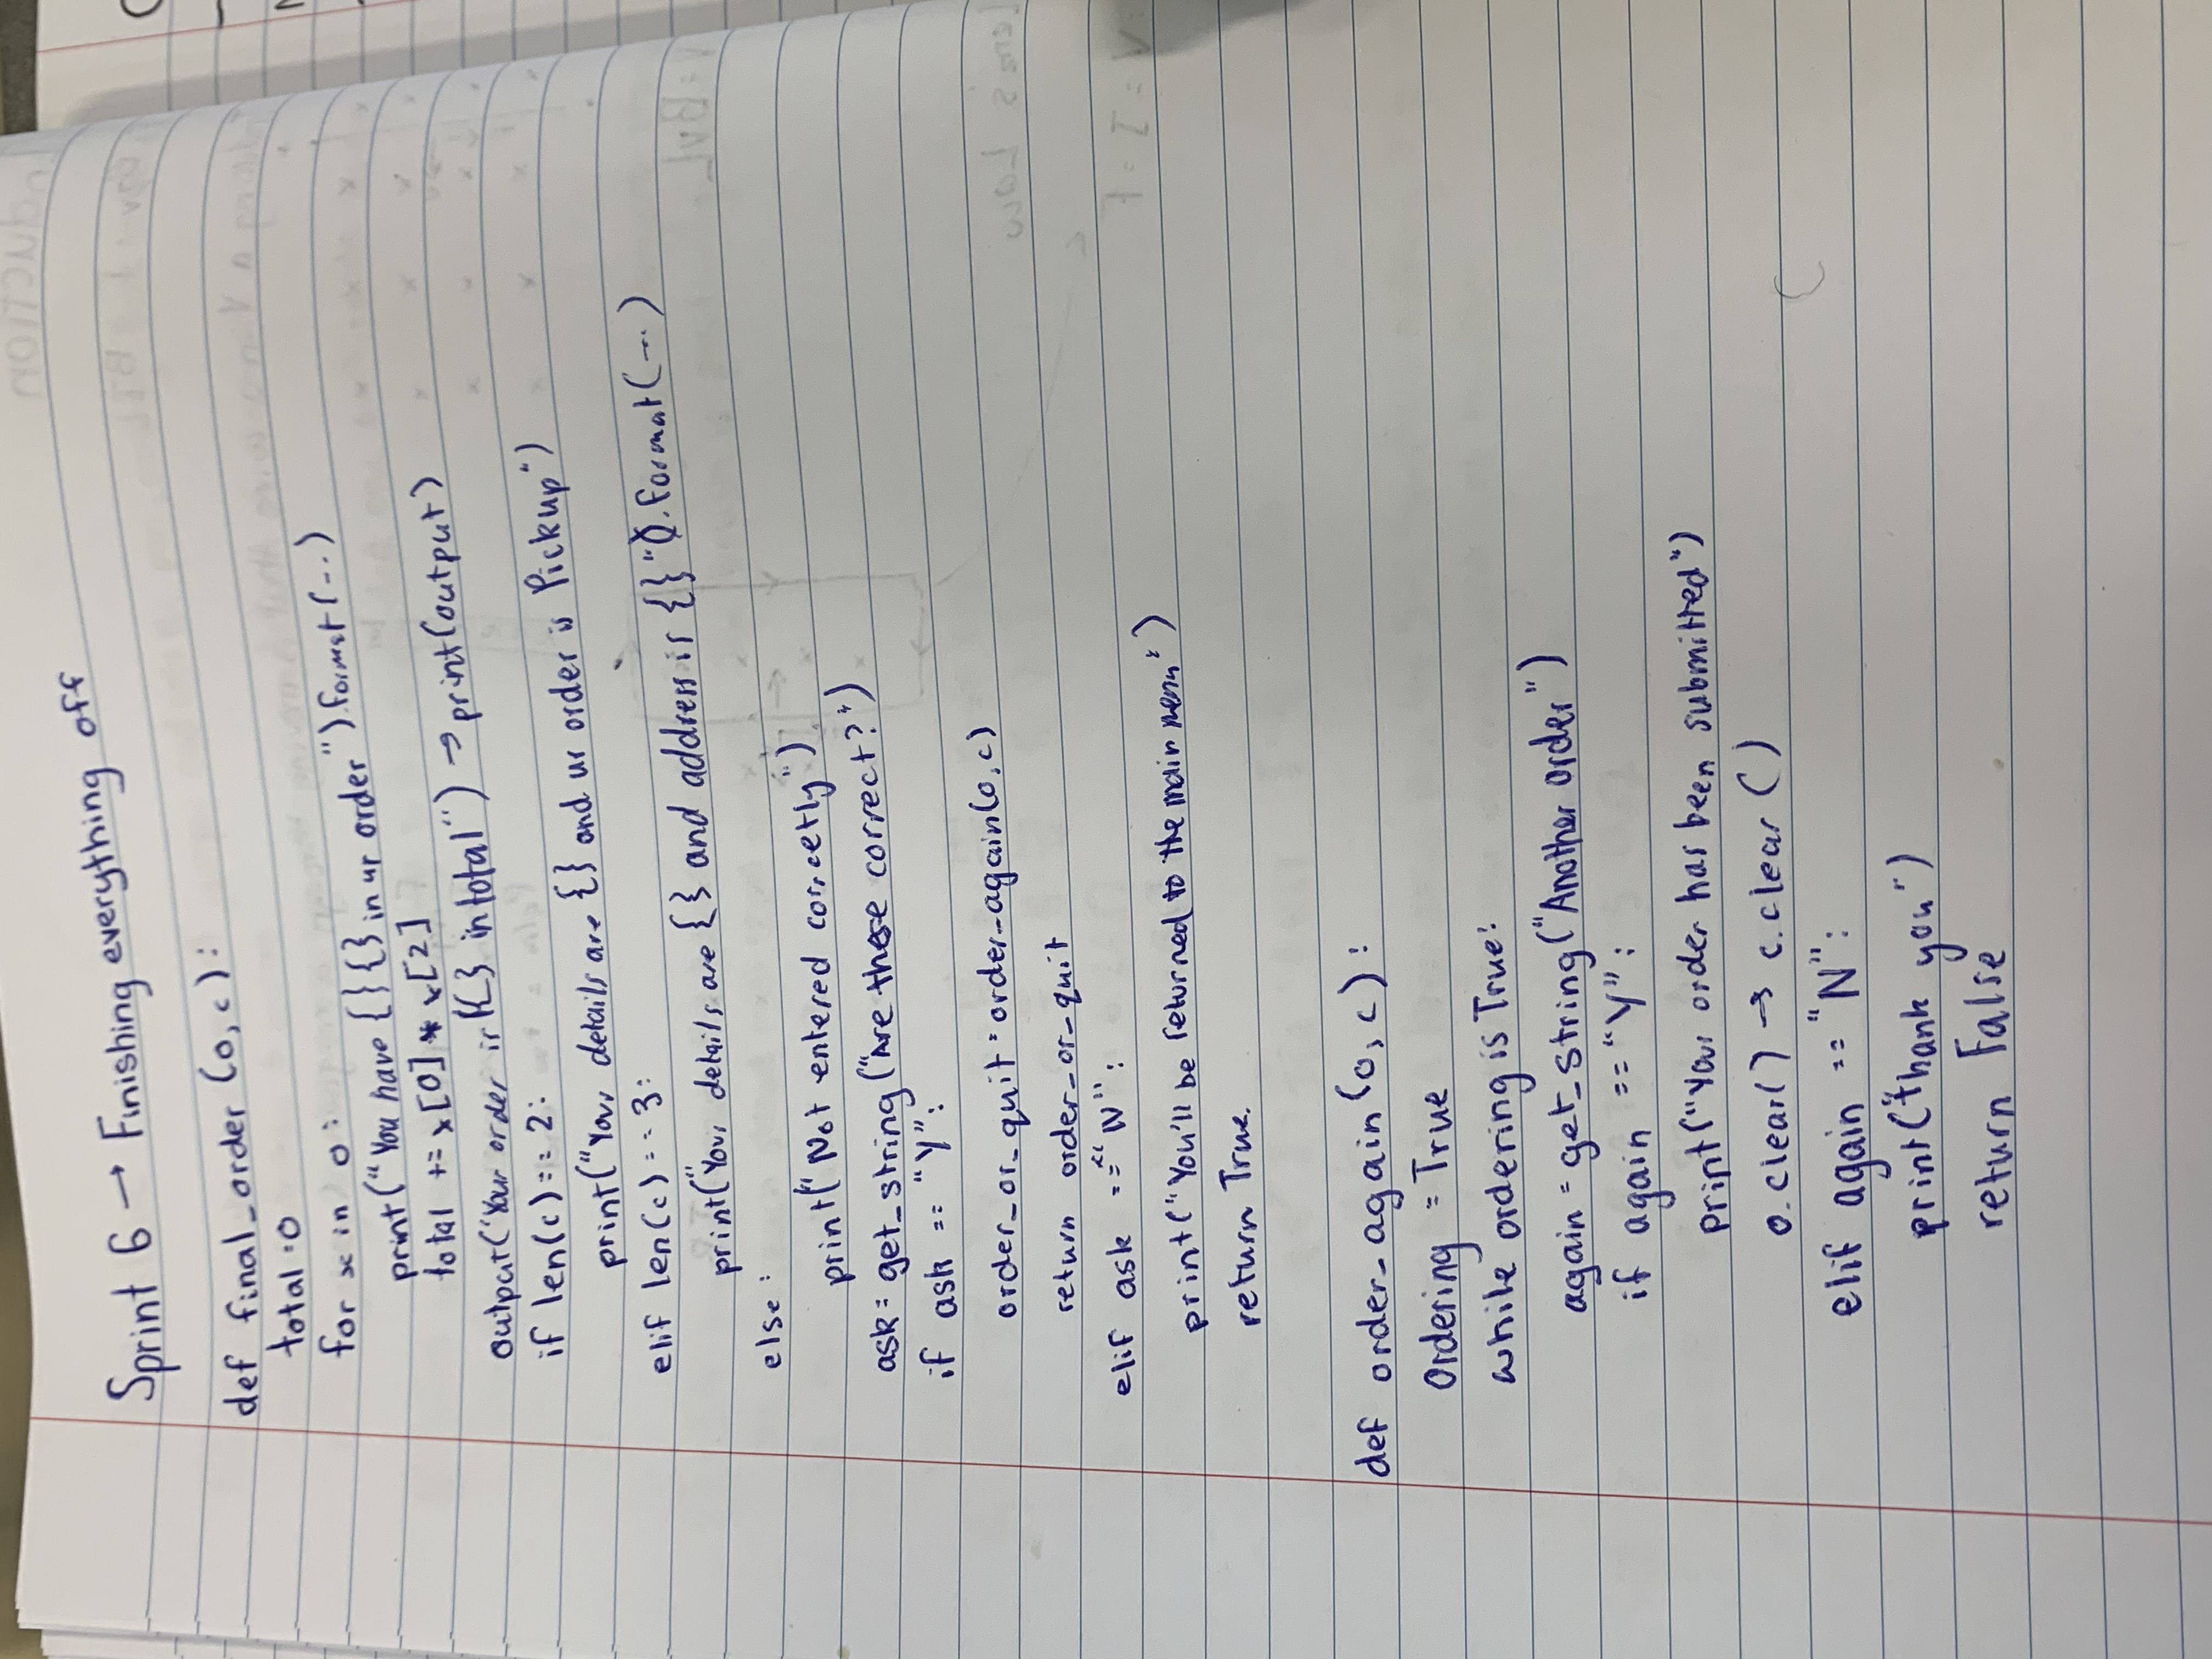 Sprint 6 → Finishing everything off
def final_order (o, c):
total = 0
for x in o:
print("You have {} {} in ur order").format(...)
total += x[0] * x[2]
output("Your order is {} in total") → print(output)
if len(c) == 2:
print("Your details are {} and ur order is Pickup")
elif len(c) == 3:
print("Your details are {} and address is {}").format(...)
else:
print("Not entered correctly")
ask = get_string("Are these correct?")
if ask == "Y":
order_or_quit = order_again(o, c)
return order_or_quit
elif ask == "N":
print("You'll be returned to the main menu")
return True.
def order_again(o, c):
Ordering = True
while ordering is True:
again = get_string("Another order")
if again == "Y":
print("Your order has been submitted")
o.clear() → c.clear()
elif again == "N":
print("thank you")
return False